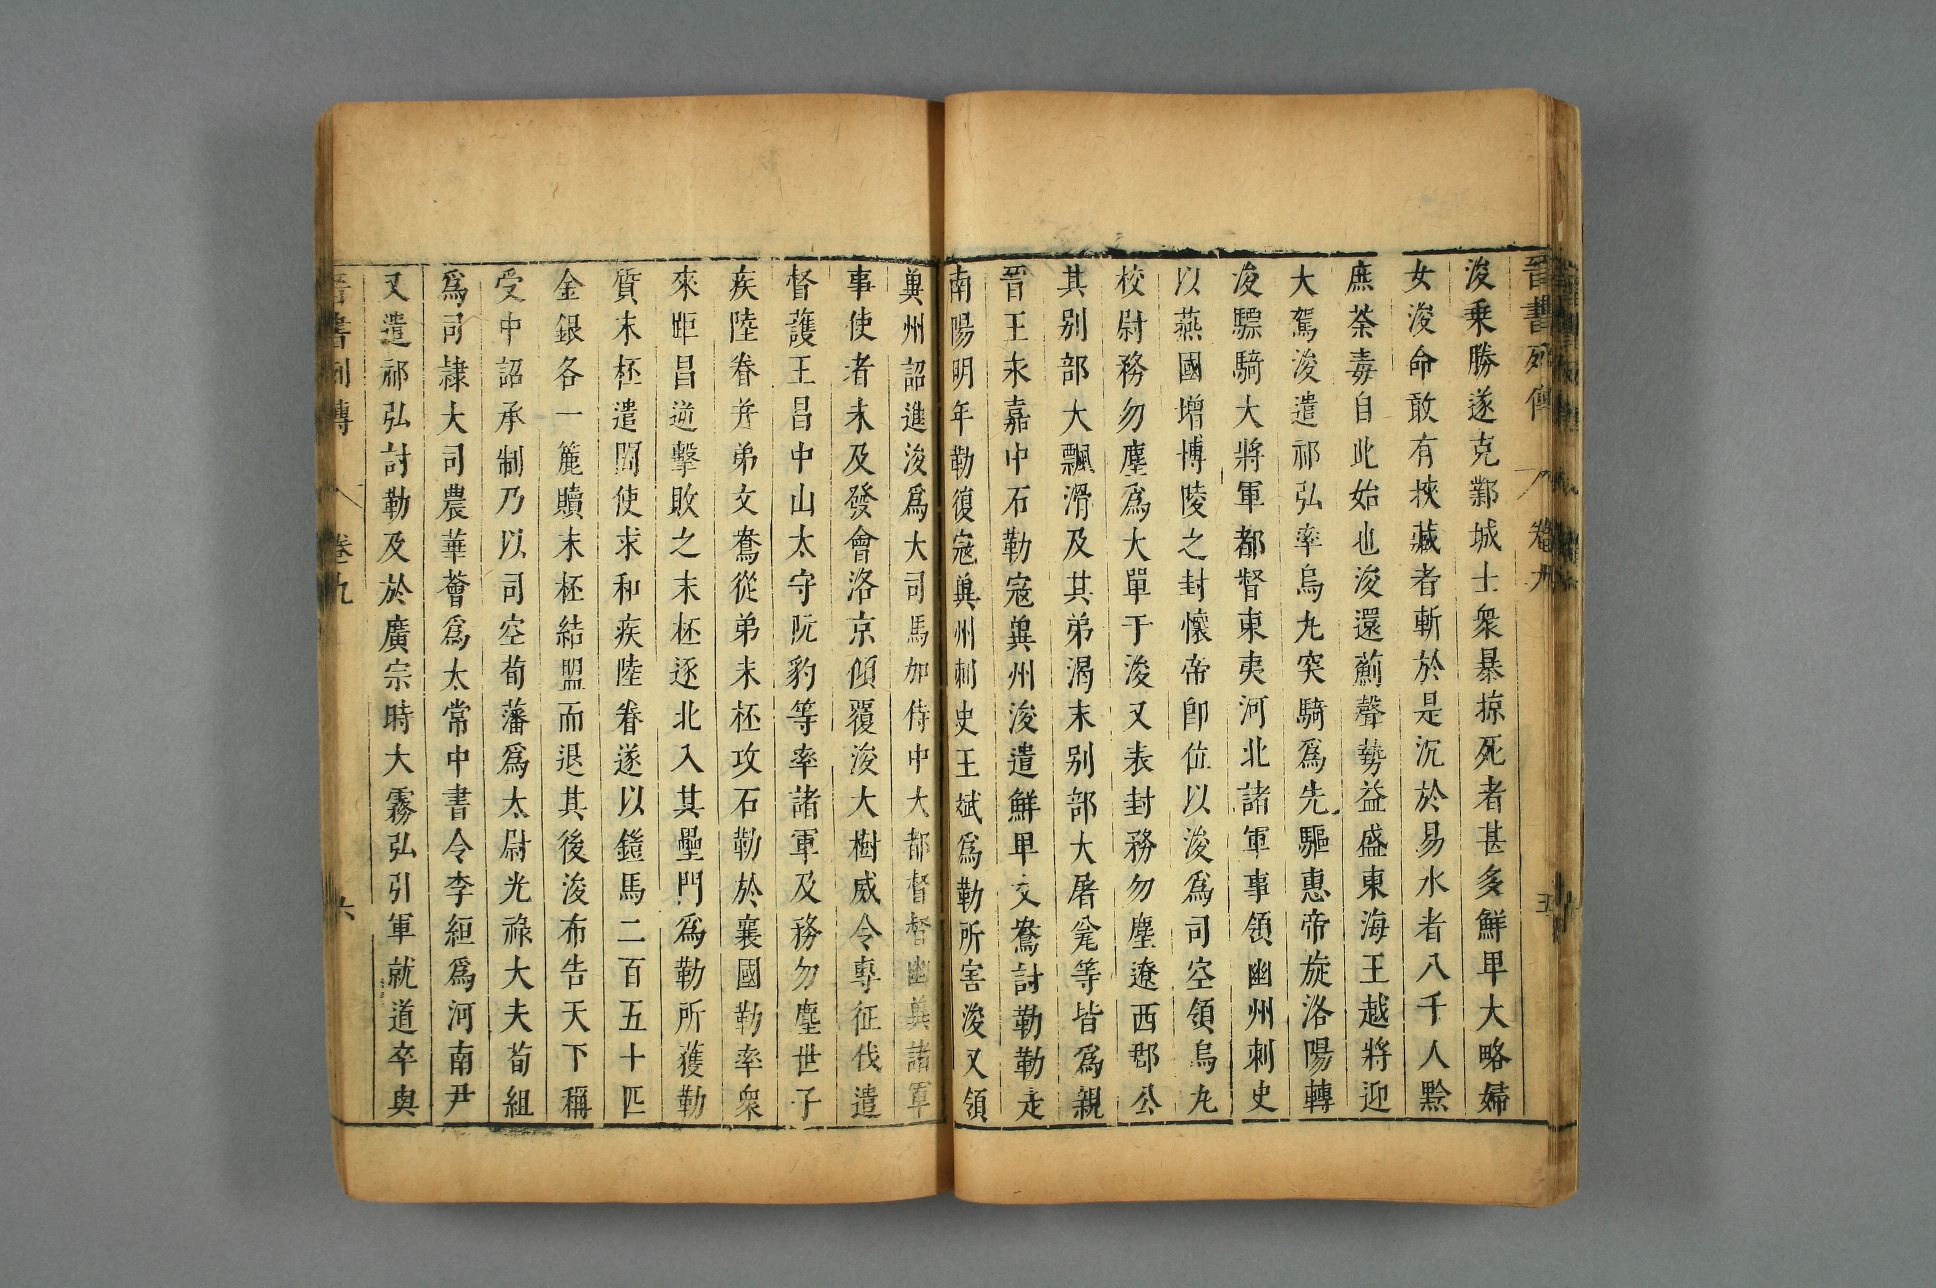 晉書列傳 卷九 五
浚乗勝遂克鄴城士衆暴掠死者甚多鮮卑大略婦
女浚命敢有挾藏者斬於是沉於易水者八千人黔
庶荼毒自此始也浚還薊聲勢益盛東海王越將迎
大駕浚遣祁弘率烏丸突騎爲先驅惠帝旋洛陽轉
浚驃騎大將軍都督東夷河北諸軍事領幽州刺史
以燕國增博陵之封懷帝卽位以浚爲司空領烏丸
校尉務勿塵爲大單于浚又表封務勿塵遼西郡公
其别部大飄滑及其弟渴末别部大屠瓮等皆爲親
晉王永嘉中石勒寇兾州浚遣鮮卑文鴦討勒勒走
南陽明年勒復寇兾州刺史王斌爲勒所害浚又領
兾州詔進浚爲大司馬加侍中大都督督幽兾諸軍
事使者未及發會洛京傾覆浚大樹威令專征伐遣
督護王昌中山太守阮豹等率諸軍及務勿塵世子
疾陸眷并弟文鴦從弟末柸攻石勒於襄國勒率衆
來距昌逆擊敗之末柸逐北入其壘門爲勒所獲勒
質末柸遣間使求和疾陸眷遂以鎧馬二百五十匹
金銀各一簏贖末柸結盟而退其後浚布告天下稱
受中詔承制乃以司空荀藩爲太尉光祿大夫荀組
爲司隸大司農華薈爲太常中書令李絚爲河南尹
又遣祁弘討勒及於廣宗時大霧弘引軍就道卒與
晉書列傳 卷九 六